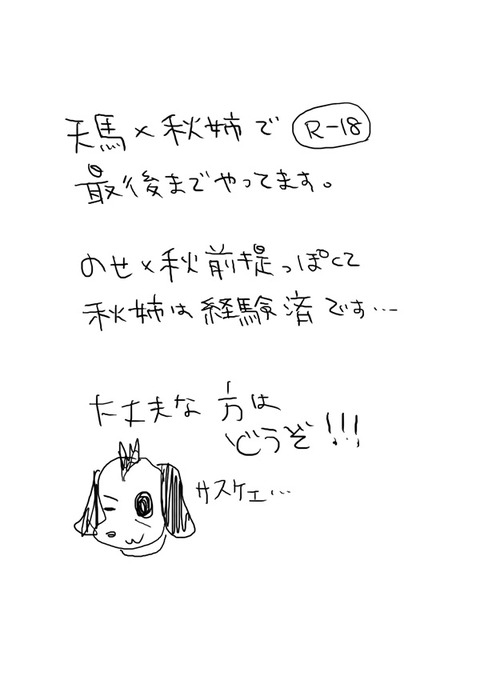 天馬×秋姉で R-18
最後までやってます。
のせ×秋前提っぽくて
秋姉は経験済です…
大丈夫な方は
どうぞ!!!
サスケェ…